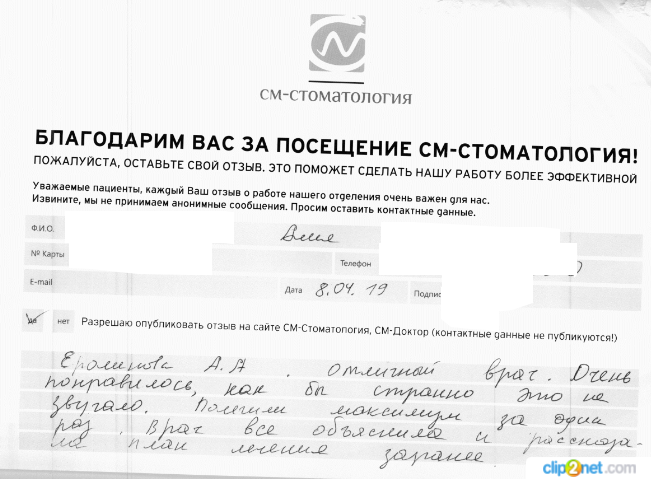 СМ-СТОМАТОЛОГИЯ
БЛАГОДАРИМ ВАС ЗА ПОСЕЩЕНИЕ СМ-СТОМАТОЛОГИЯ!
ПОЖАЛУЙСТА, ОСТАВЬТЕ СВОЙ ОТЗЫВ. ЭТО ПОМОЖЕТ СДЕЛАТЬ НАШУ РАБОТУ БОЛЕЕ ЭФФЕКТИВНОЙ
Уважаемые пациенты, каждый Ваш отзыв о работе нашего отделения очень важен для нас.
Извините, мы не принимаем анонимные сообщения. Просим оставить контактные данные.
Ф.И.О.
№ Карты Телефон
E-mail Дата 8.04.19 Подпис
да нет Разрешаю опубликовать отзыв на сайте СМ-Стоматология, СМ-Доктор (контактные данные не публикуются!)
А.А. Отличный врач. Очень
понравилось, как бы странно это не
звучало. Полечили максимум за один
раз. Врач все объяснила и рассказа-
ла план лечения заранее.
clip2net.com